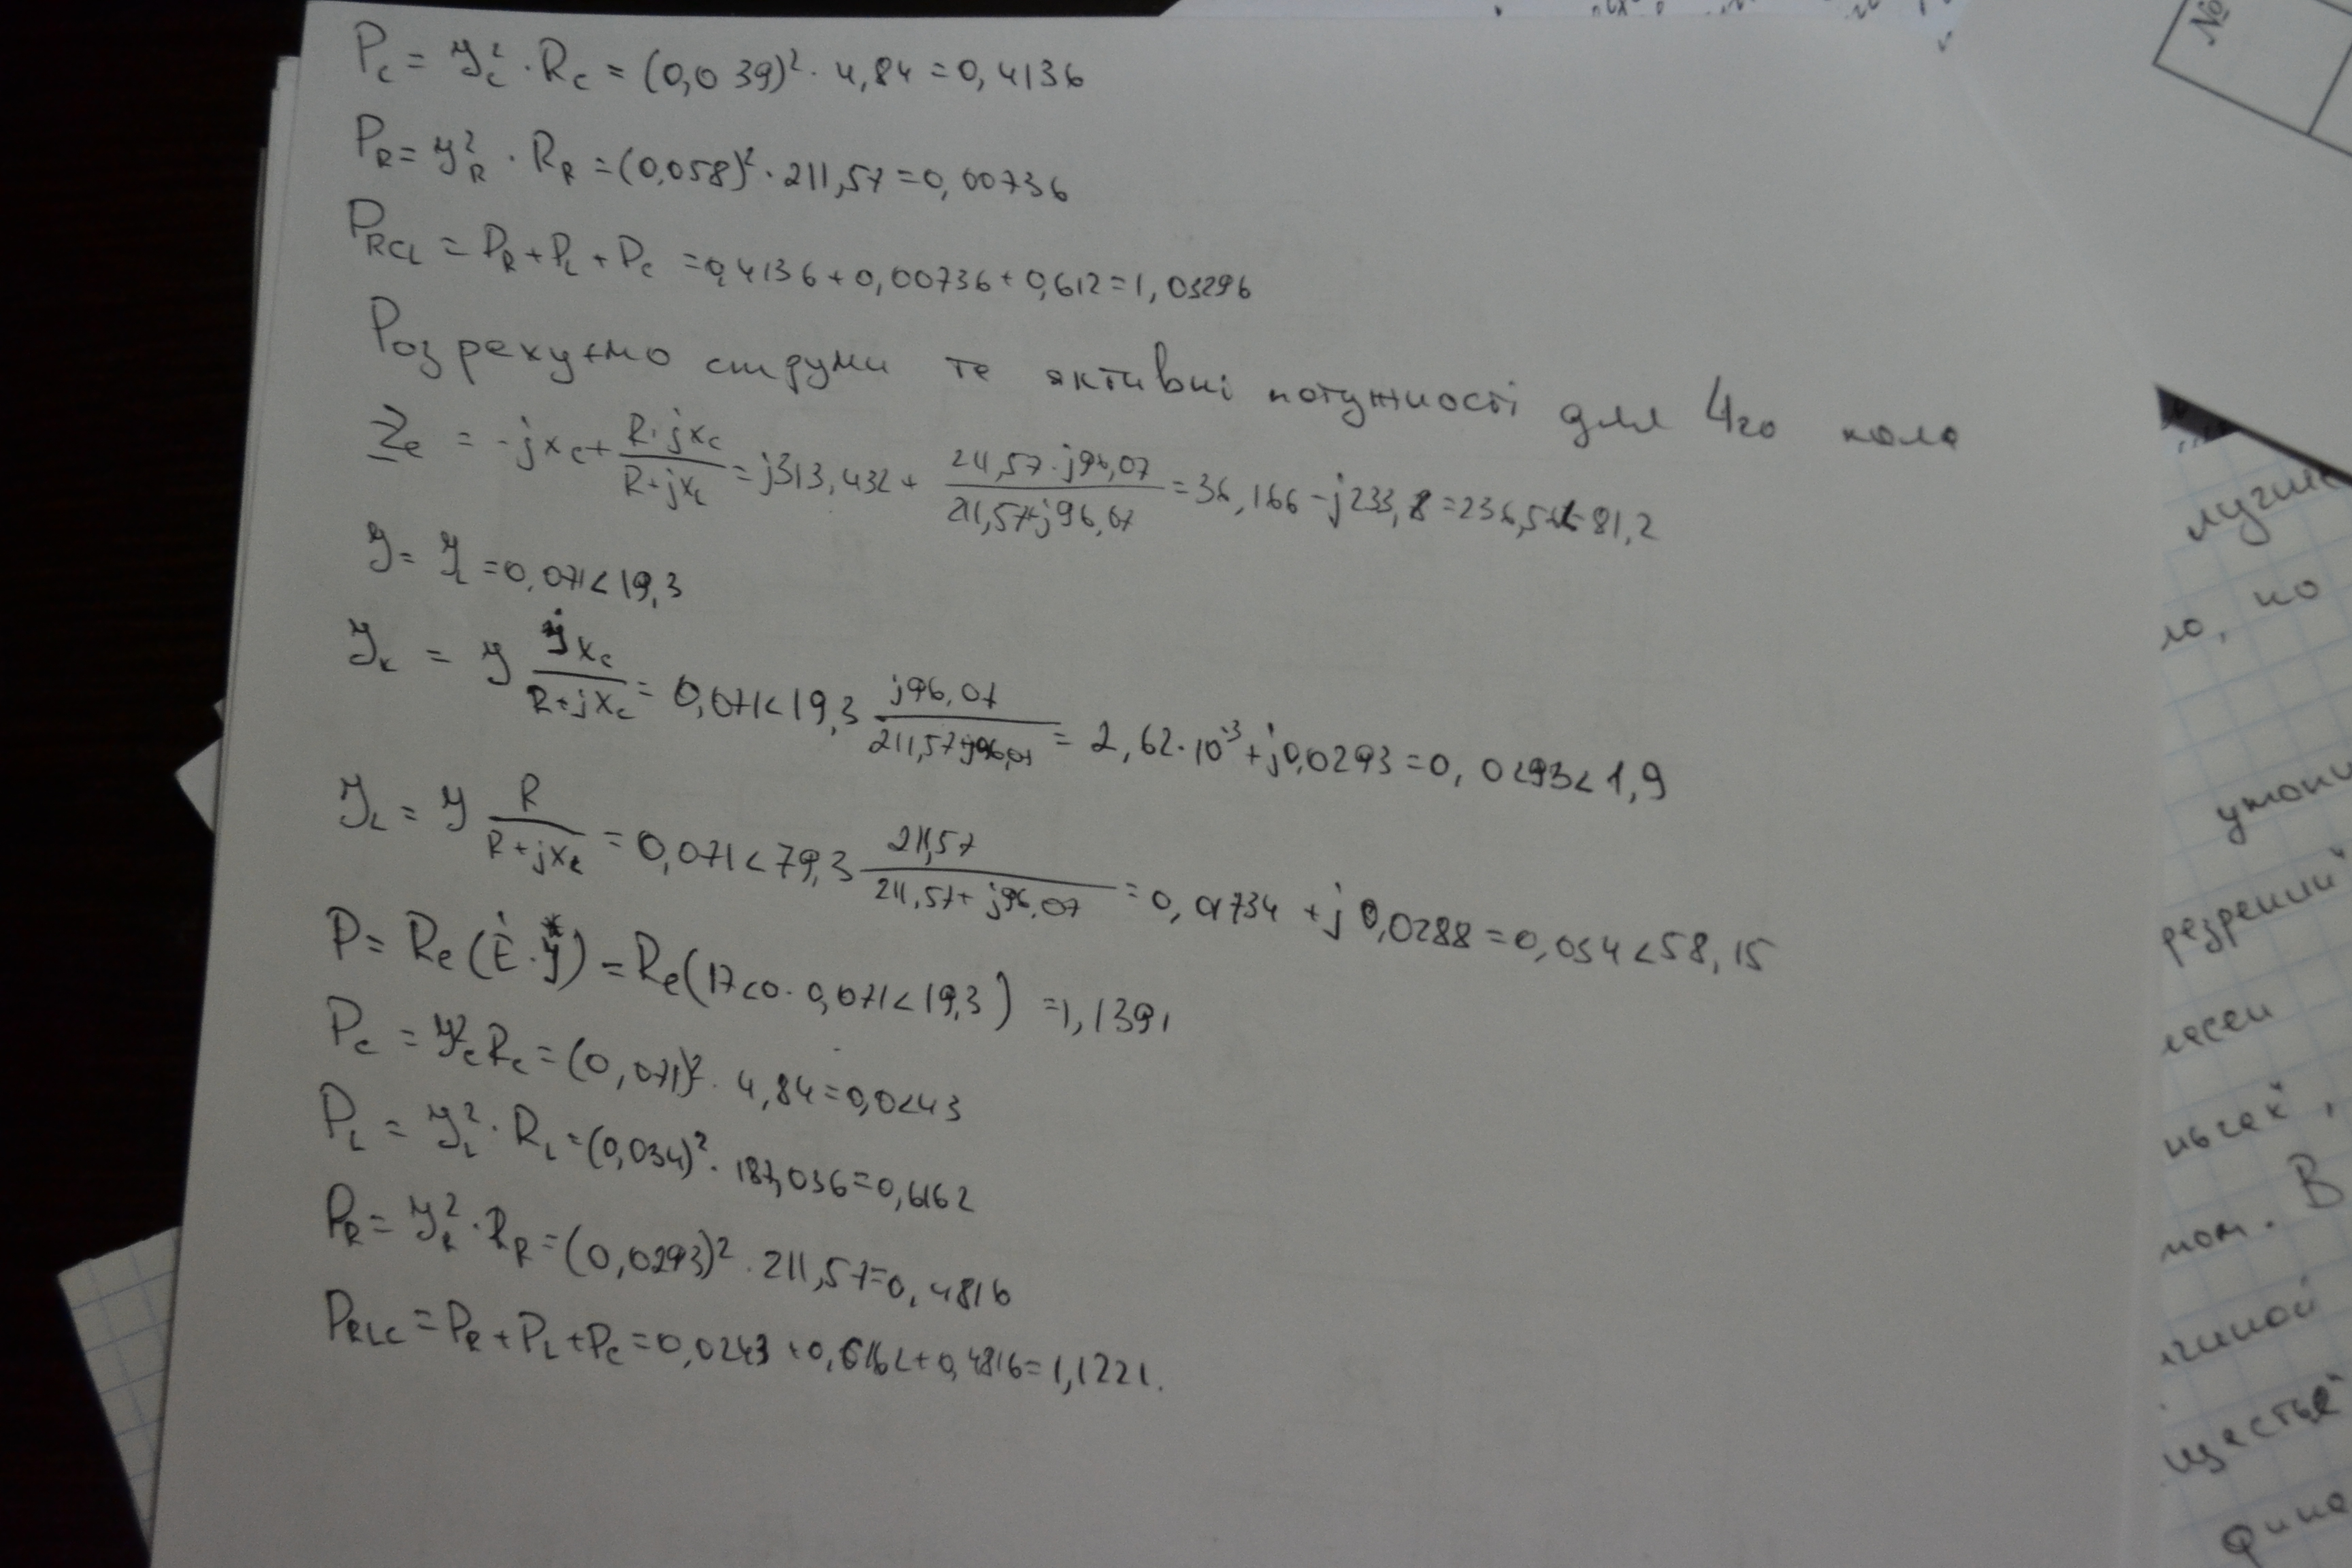 P_C = У_C² · R_C = (0,039)² · 4,84 = 0,4136
P_R = У_R² · R_R = (0,058)² · 211,57 = 0,00736
P_RCL = P_R + P_L + P_C = 0,4136 + 0,00736 + 0,612 = 1,03296
Розрахуємо струми та активні потужності для 4го кола
Z_e = -jx_c + R·jx_L / R+jx_L = j313,432 + 211,57·j96,07 / 211,57+j96,07 = 36,166 - j233,8 = 236,5<-81,2
У = У_C = 0,071<19,3
У_R = У jx_L / R+jx_L = 0,071<19,3 j96,07 / 211,57+j96,07 = 2,62·10⁻³ + j0,0293 = 0,0293<1,9
У_L = У R / R+jx_L = 0,071<79,3 211,57 / 211,57+j96,07 = 0,01734 + j0,0288 = 0,034<58,15
P = Re(Ė·У*) = Re(17<0·0,071<19,3) = 1,1391
P_C = У_C² R_C = (0,071)² · 4,84 = 0,0243
P_L = У_L² · R_L = (0,034)² · 187,036 = 0,6162
P_R = У_R² · R_R = (0,0293)² · 211,57 = 0,4816
P_RLC = P_R + P_L + P_C = 0,0243 + 0,6162 + 0,4816 = 1,1221.
№